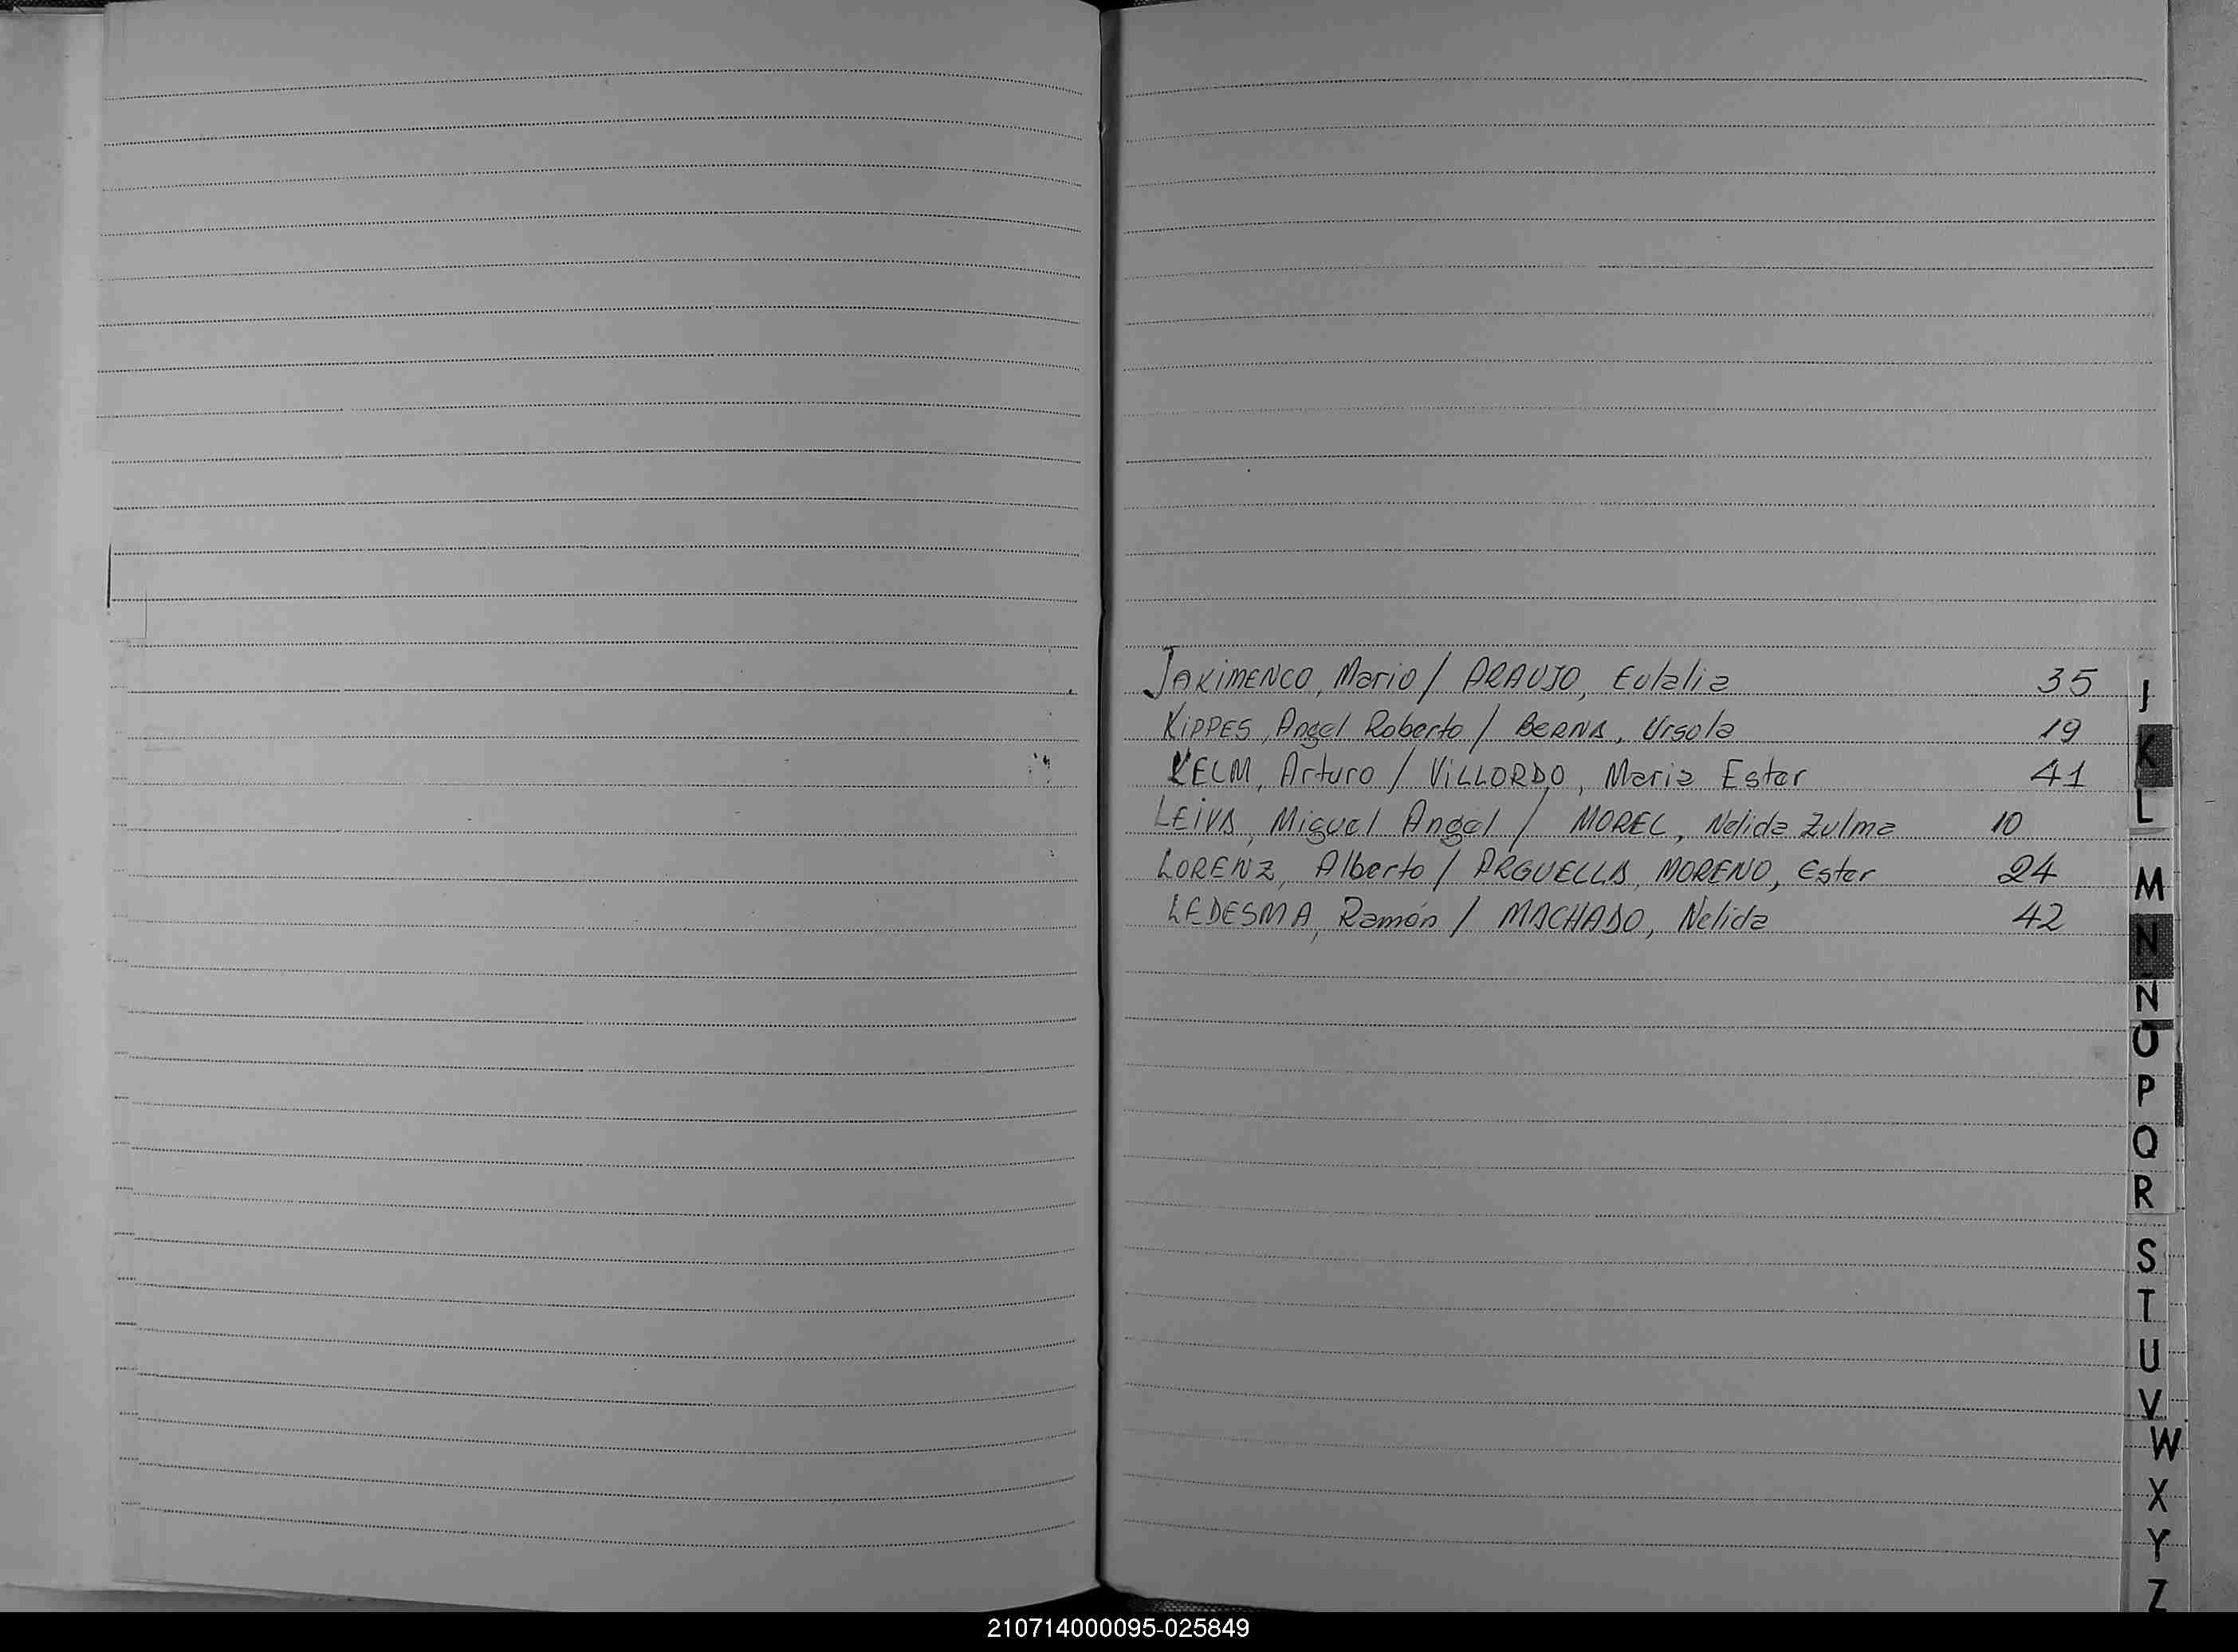 JAKIMENCO, Mario / ARAUJO, Eulalia 35
KIPPES, Angel Roberto / BERNA, Ursola 19
KELM, Arturo / VILLORDO, Maria Ester 41
LEIVA, Miguel Angel / MOREL, Nelida Zulma 10
LORENZ, Alberto / ARGUELLA, MORENO, Ester 24
LEDESMA, Ramón / MACHADO, Nelida 42
J
K
L
M
N
Ñ
O
P
Q
R
S
T
U
V
W
X
Y
Z
210714000095-025849